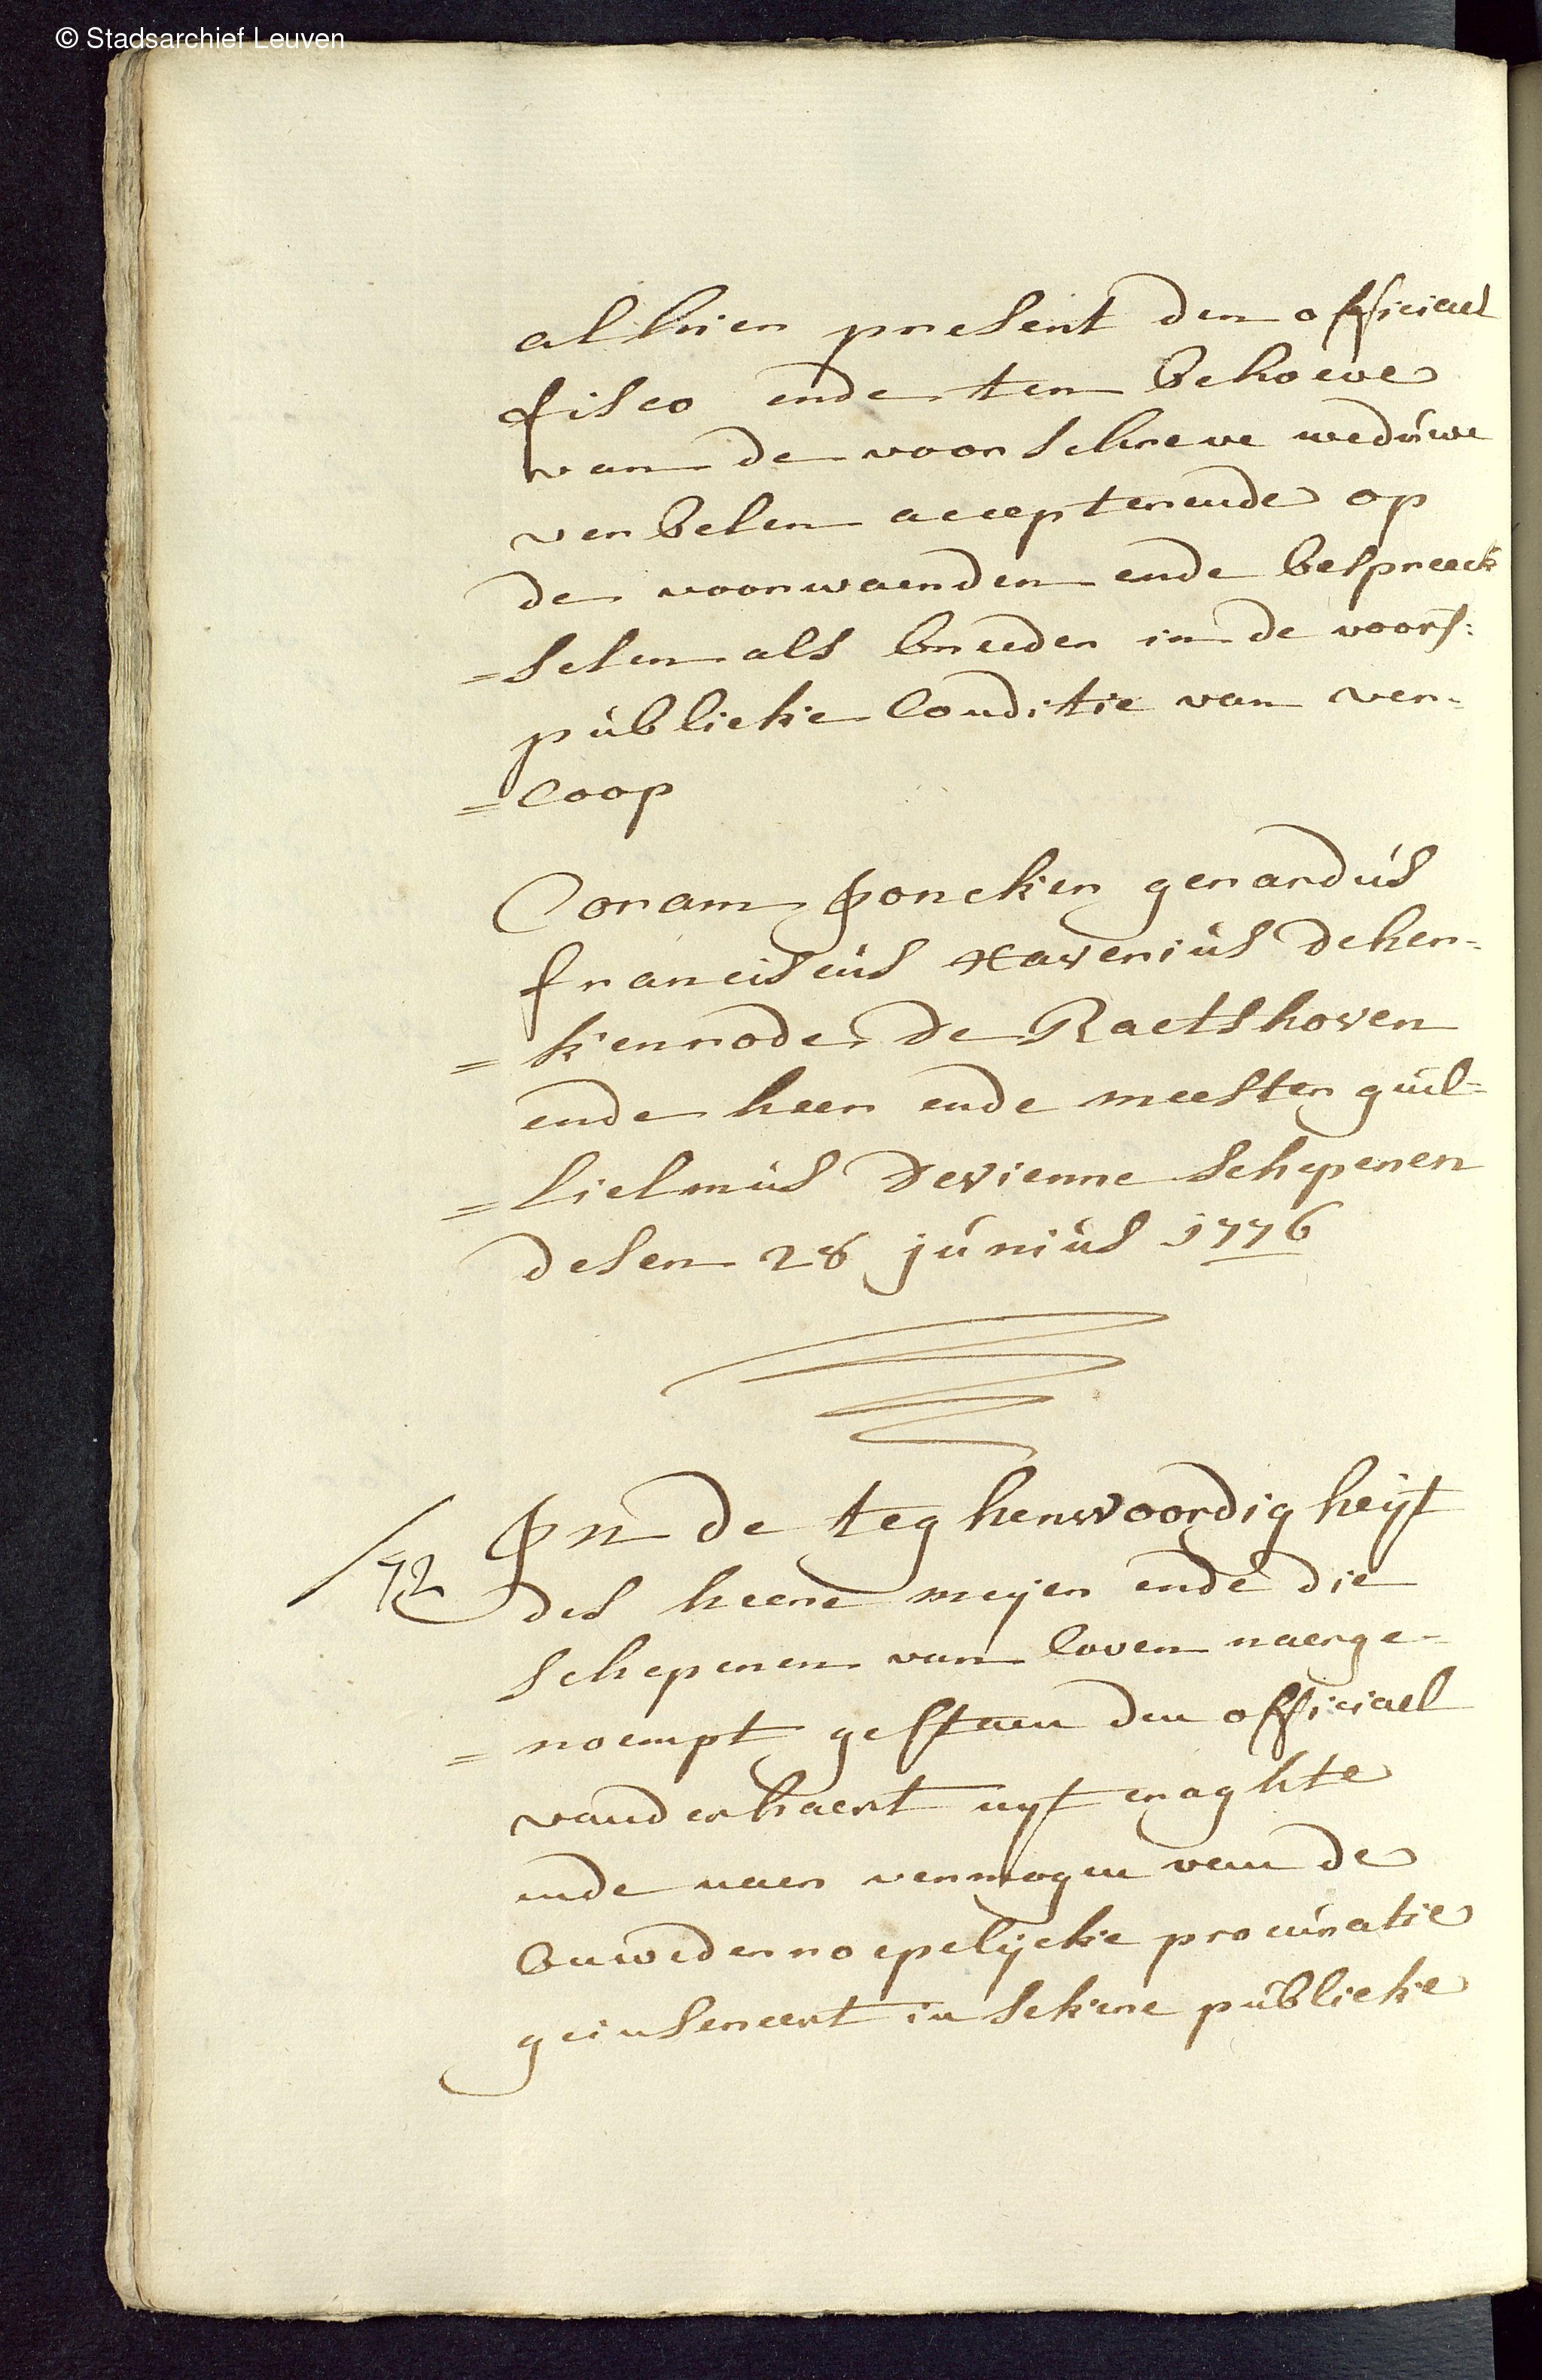 © Stadsarchief Leuven
alhier present den officiael
fisco ende ten behoeve
van de voorschreve weduwe
verbelen accepterende op
de voorwaerden ende bespreeck
=selen als breeder in de voors:
publieke Conditie van ver=
=coop
Coram Joncker gerardus
franciscus Xaverius deker=
=kenrode de Raetshoven
ende heer ende meester guil=
=lielmus Devienne schepenen
desen 28 junius 1776
72
In de teghenwoordigheijt
des heere meijer ende die
schepenen van loven naerge=
=noempt gestaen den officiael
vanderhaert uyt craghte
ende naer vermogen van de
onwederroepelijcke procuratie
geinsereert in sekere publieke